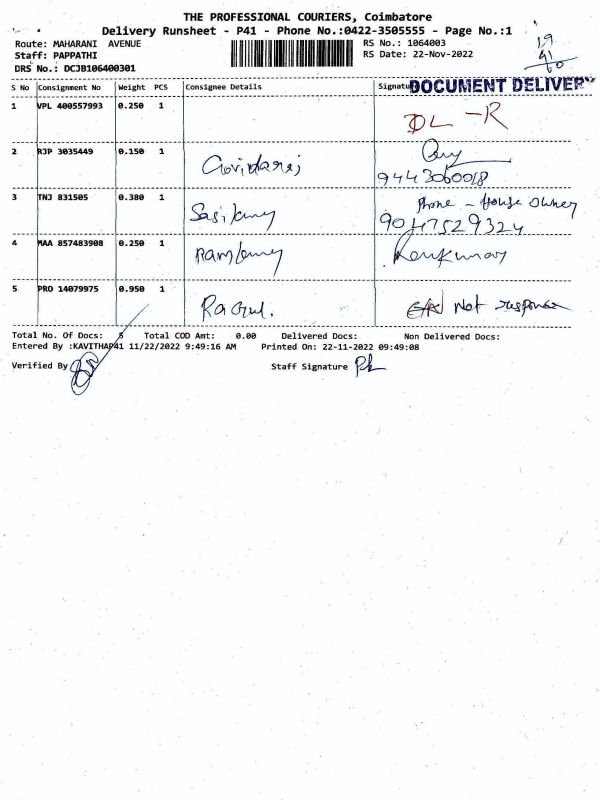 THE PROFESSIONAL COURIERS, Coimbatore
Delivery Runsheet - P41 - Phone No.:0422-3505555 - Page No.:1
Route: MAHARANI AVENUE RS No.: 1064003
Staff: PAPPATHI RS Date: 22-Nov-2022
DRS No.: DCJB106400301
19
41
60
DOCUMENT DELIVERY
S No Consignment No Weight PCS Consignee Details
1 VPL 400557993 0.250 1 DL -R
2 RJP 3035449 0.150 1 Govindaraj
9443060018
3 TNJ 831505 0.380 1 Phone - House Owner
9047529324
4 MAA 857483908 0.250 1 Ramkumar
5 PRO 14079975 0.950 1 Ragul. Not response
Total No. Of Docs: 5 Total COD Amt: 0.00 Delivered Docs: Non Delivered Docs:
Entered By :KAVITHAP41 11/22/2022 9:49:16 AM Printed On: 22-11-2022 09:49:08
Verified By Staff Signature